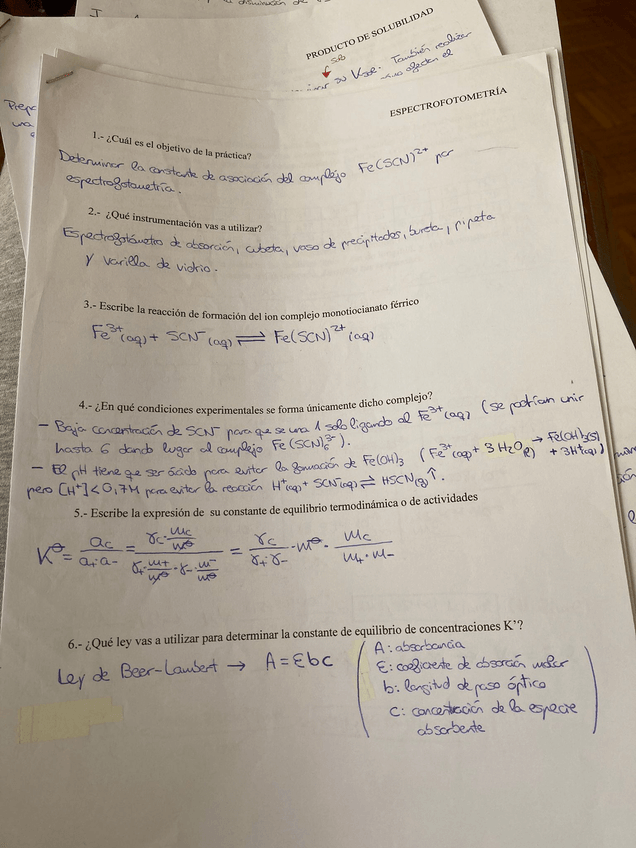 la disminución de
PRODUCTO DE SOLUBILIDAD
su Kps. También realizar
afectan el
Prepa
una
ESPECTROFOTOMETRÍA
1.- ¿Cuál es el objetivo de la práctica?
Determinar la constante de asociación del complejo Fe(SCN)²⁺ por
espectrofotometría.
2.- ¿Qué instrumentación vas a utilizar?
Espectrofotómetro de absorción, cubeta, vaso de precipitados, bureta, pipeta
y varilla de vidrio.
3.- Escribe la reacción de formación del ion complejo monotiocianato férrico
Fe³⁺(aq) + SCN⁻(aq) ⇌ Fe(SCN)²⁺(aq)
4.- ¿En qué condiciones experimentales se forma únicamente dicho complejo?
- Baja concentración de SCN⁻ para que se una 1 solo ligando al Fe³⁺(aq) (se podrían unir
hasta 6 dando lugar al complejo Fe(SCN)₆³⁻).
- El pH tiene que ser ácido para evitar la formación de Fe(OH)₃ (Fe³⁺(aq) + 3H₂O(l) → Fe(OH)₃(s) + 3H⁺(aq))
pero [H⁺]<0,7M para evitar la reacción H⁺(aq) + SCN⁻(aq) ⇌ HSCN(g)↑.
5.- Escribe la expresión de su constante de equilibrio termodinámica o de actividades
K^⊖ = a_c / (a₊·a₋) = (γ_c · m_c/m^⊖) / (γ₊ · m₊/m^⊖ · γ₋ · m₋/m^⊖) = γ_c / (γ₊·γ₋) · m^⊖ · m_c / (m₊·m₋)
6.- ¿Qué ley vas a utilizar para determinar la constante de equilibrio de concentraciones K'?
Ley de Beer-Lambert → A = Ɛbc
A: absorbancia
Ɛ: coeficiente de absorción molar
b: longitud de paso óptico
c: concentración de la especie
absorbente